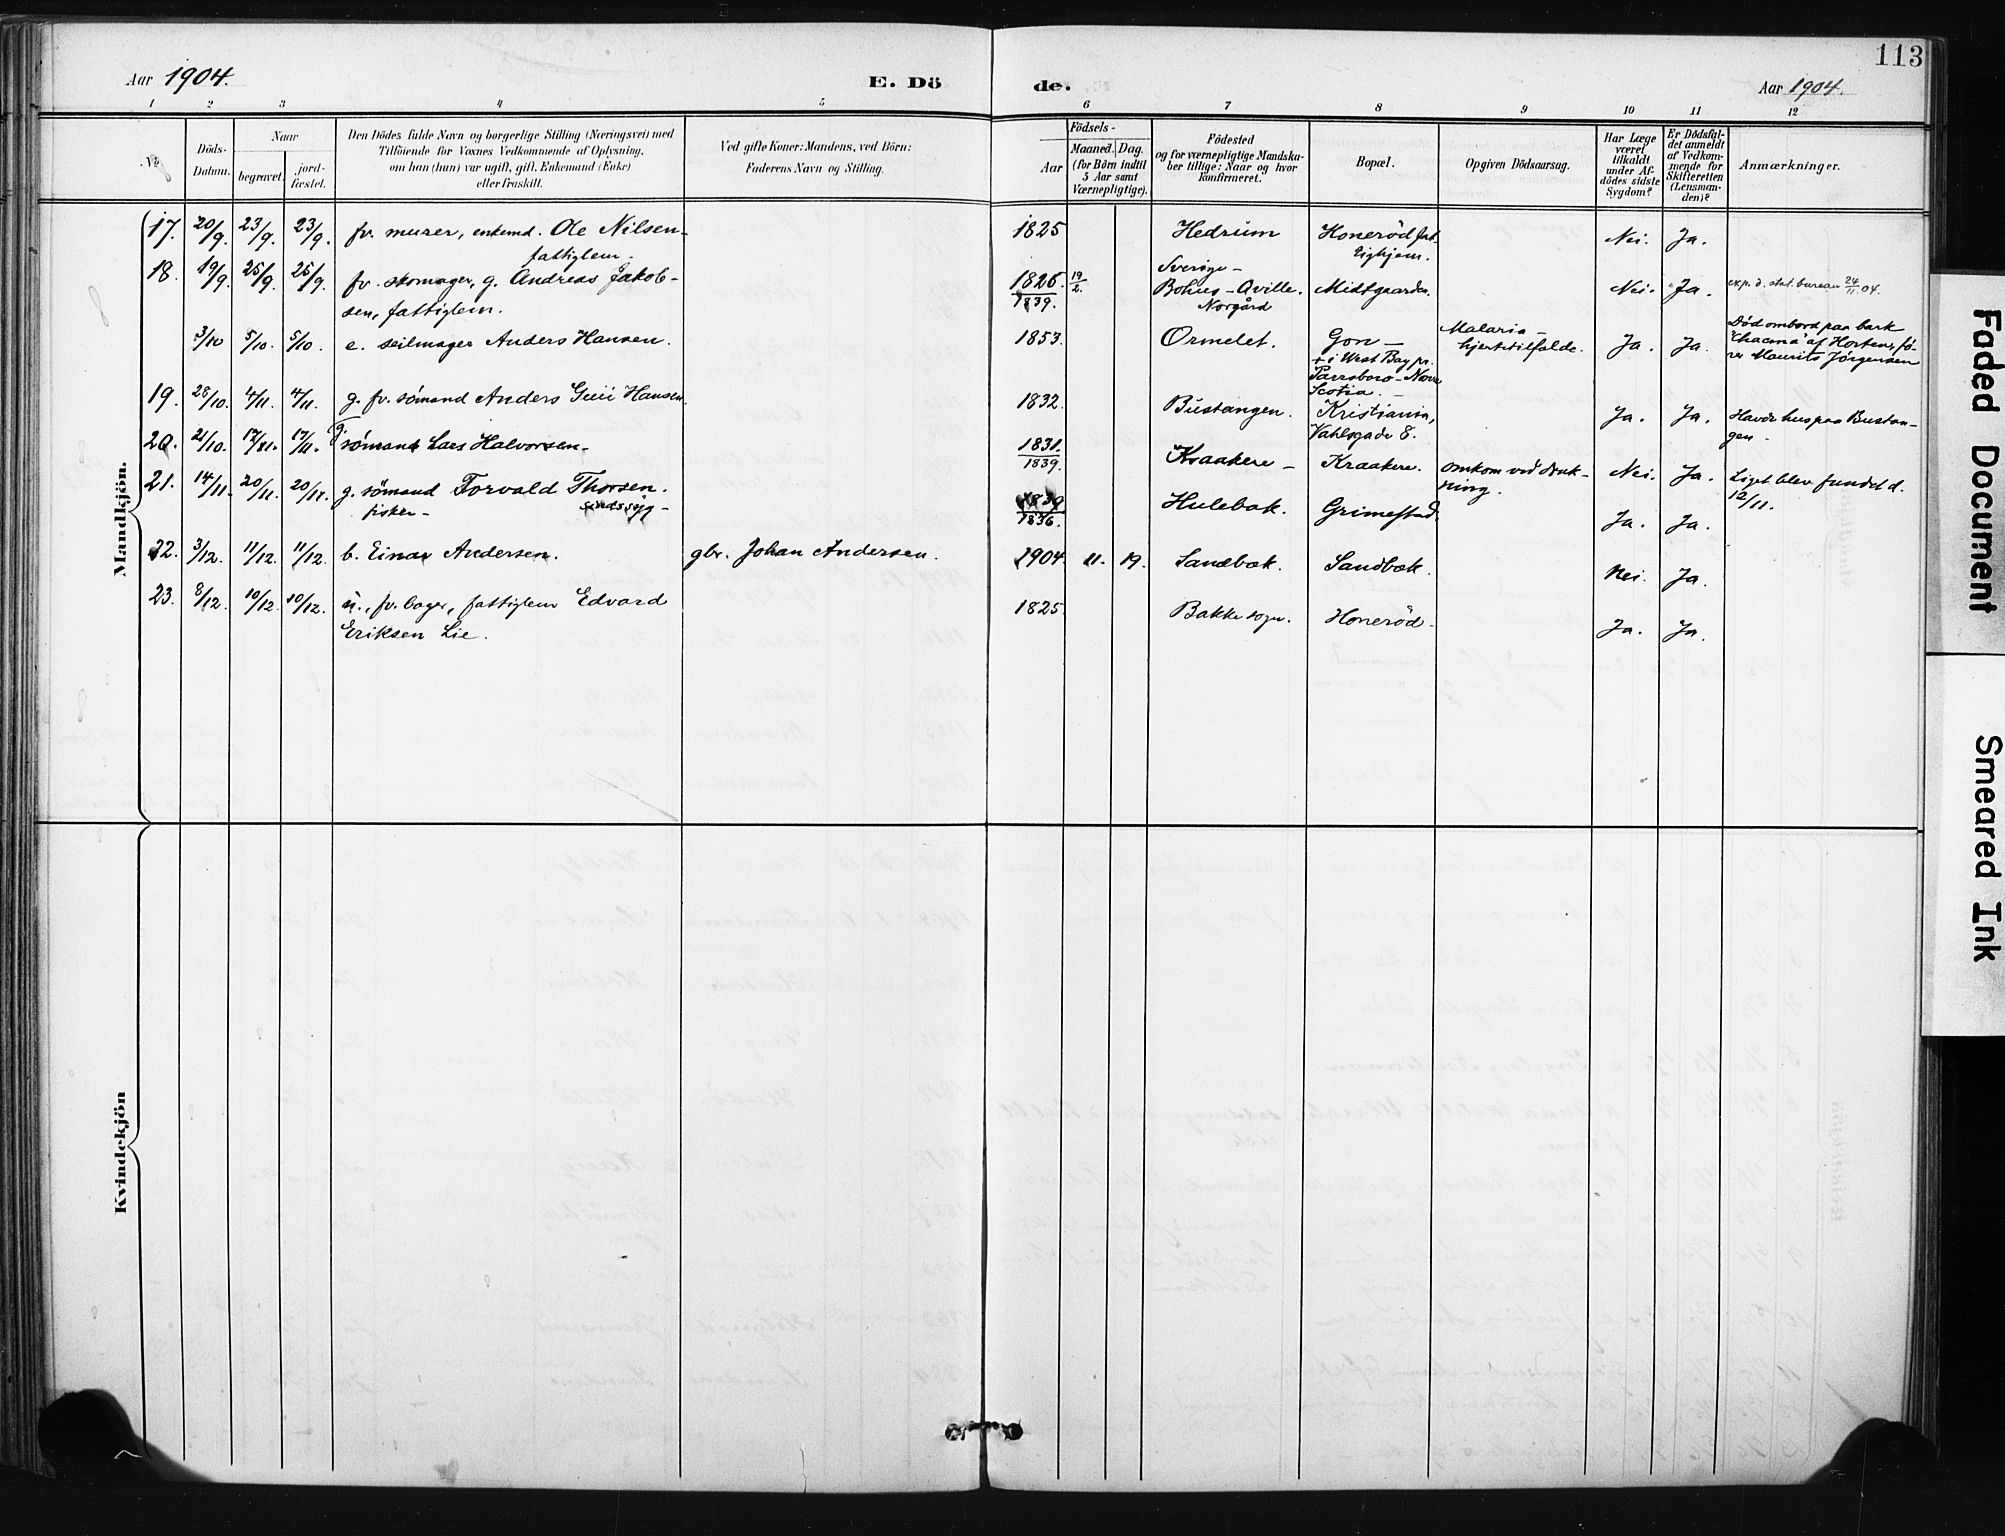 113
Aar 1904.
E. Dö
de.
Aar 1904.
1 2 3 4 5 6 7 8 9 10 11 12
No
Döds-
Datum.
Naar
begravet.
jord-
fæstet.
Den Dödes fulde Navn og borgerlige Stilling (Næringsvei) med
Tilföiende for Voxnes Vedkommende af Oplysning,
om han (hun) var ugift, gift, Enkemand (Enke)
eller fraskilt.
Ved gifte Koner: Mandens, ved Börn:
Faderens Navn og Stilling.
Födsels-
Aar
Maaned. Dag.
(for Börn indtil
5 Aar samt
Værnepligtige).
Födested
og for værnepligtige Mandska-
ber tillige: Naar og hvor
konfirmeret.
Bopæl.
Opgiven Dödsaarsag.
Har Læge
været
tilkaldt
under Af-
dödes sidste
Sygdom?
Er Dödsfal-
det anmeldt
af Vedkom-
mende for
Skifteretten
(Lensman-
den)?
Anmærkninger.
Mandkjön.
17. 20/9. 23/9. 23/9. fv. murer, enkemd. Ole Nilsen
fattiglem.
1825 Hedrum Honeröd fat-
tighjem. Nei. Ja.
18. 19/9. 25/9. 25/9. fv. skomager, g. Andreas Jakob-
sen, fattiglem.
1826. 19/2.
1839.
Sverige-
Bohus-Qville.
Norgård
Midtgaarden. Nei. Ja. exp. d. stat. bureau 24/11 04.
3/10 5/10. 5/10. e. seilmager Anders Hansen.
1853. Ormelet. Gon -
+ i West Bay pr.
Parrsboro - Nova
Scotia.
Malaria -
hjertetilfælde. Ja. Ja.
Död ombord paa bark
"Chacma" af Horten, fö-
rer Maurits Jørgensen
19. 28/10. 4/11. 4/11. g. fv. sömand Anders Hansen.
1832. Bustangen. Kristiania,
Vahlsgade 8. Ja. Ja. Havde hus paa Bustan-
gen -
20. 21/10. 17/11. 17/11. g. sömand Lars Halvorsen
1831.
1839.
Kraakere - Kraakere. omkom ved druk-
ning. Nei. Ja. Liget blev fundet d.
12/11.
21. 14/11. 20/11. 20/11. g. sömand Torvald Thorsen.
fisker - sindssyg -
1839
1836.
Hulebak. Grimestad. Ja. Ja.
22. 3/12. 11/12. 11/12. b. Einar Andersen. gbr. Johan Andersen.
1904. 11. 19. Sandbæk. Sandbæk. Nei. Ja.
23. 8/12. 10/12. 10/12. u., fv. bager, fattiglem Edvard
Eriksen Lie.
1825 Bakke sogn. Honeröd. Ja. Ja.
Kvindekjön
Faded Document
Smeared Ink